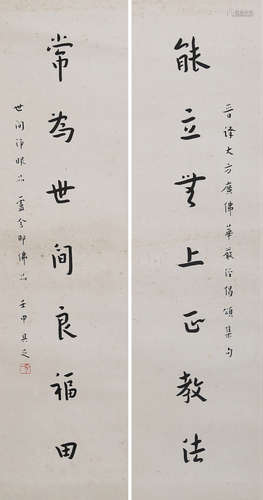 晉譯大方廣佛華嚴經偈頌集句
能立無上正教法
常為世間良福田
世間淨眼品 盧舍那佛品 壬申